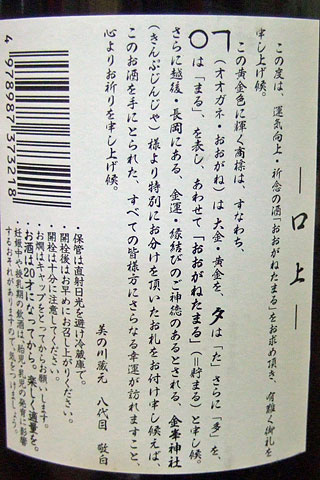 ― 口上 ―
この度は、運気向上・祈念の酒「おおがねたまる」をお求め頂き、有難く御礼を
申し上げ候。
この黄金色に輝く商標は、すなわち、
「(オオガネ・おおがね)は大金・黄金を、タは「た」さらに「多」を、
○は「まる」、を表し、あわせて「おおがねたまる」(=貯まる)と申し候。
さらに越後・長岡にある、金運・縁結びのご神徳のあるとされる、金峯神社
(きんぷじんじゃ)様より特別にお分けを頂いたお札をお付け申し候えば、
このお酒を手にとられた、すべての皆様方にさらなる幸運が訪れますこと、
心よりお祈りを申し上げ候。
美の川蔵元 八代目 敬白
・保管は直射日光を避け冷蔵庫で。
・開栓後はお早めにお召し上がりください。
・開栓は十分に注意してください。
・お燗はキャップをとってからお願いします。
・お酒は20才になってから。楽しく適量を。
・妊娠中や授乳期の飲酒は、胎児・乳児の発育に影響
するおそれがありますので、気をつけましょう。
4 978987 373218